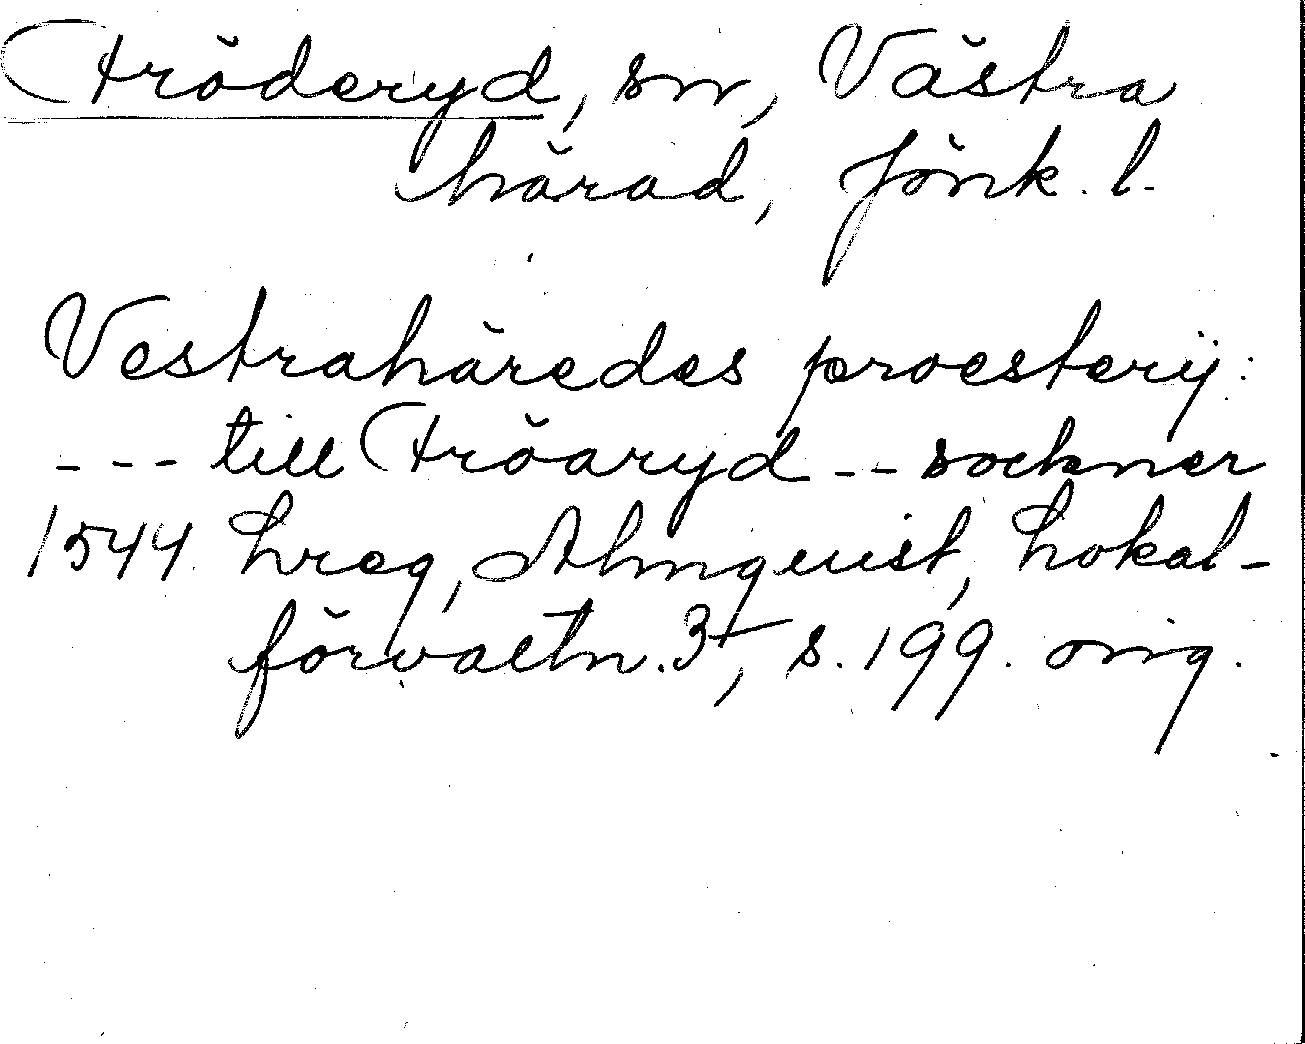 Fröderyd, sn, Västra
härad, Jönk. l.
Vestrahäredes proesterij:
--- till Fröaryd -- sockner
1544 Lreg, Almquist, Lokal-
förvaltn. 3⁺, s. 199. orig.